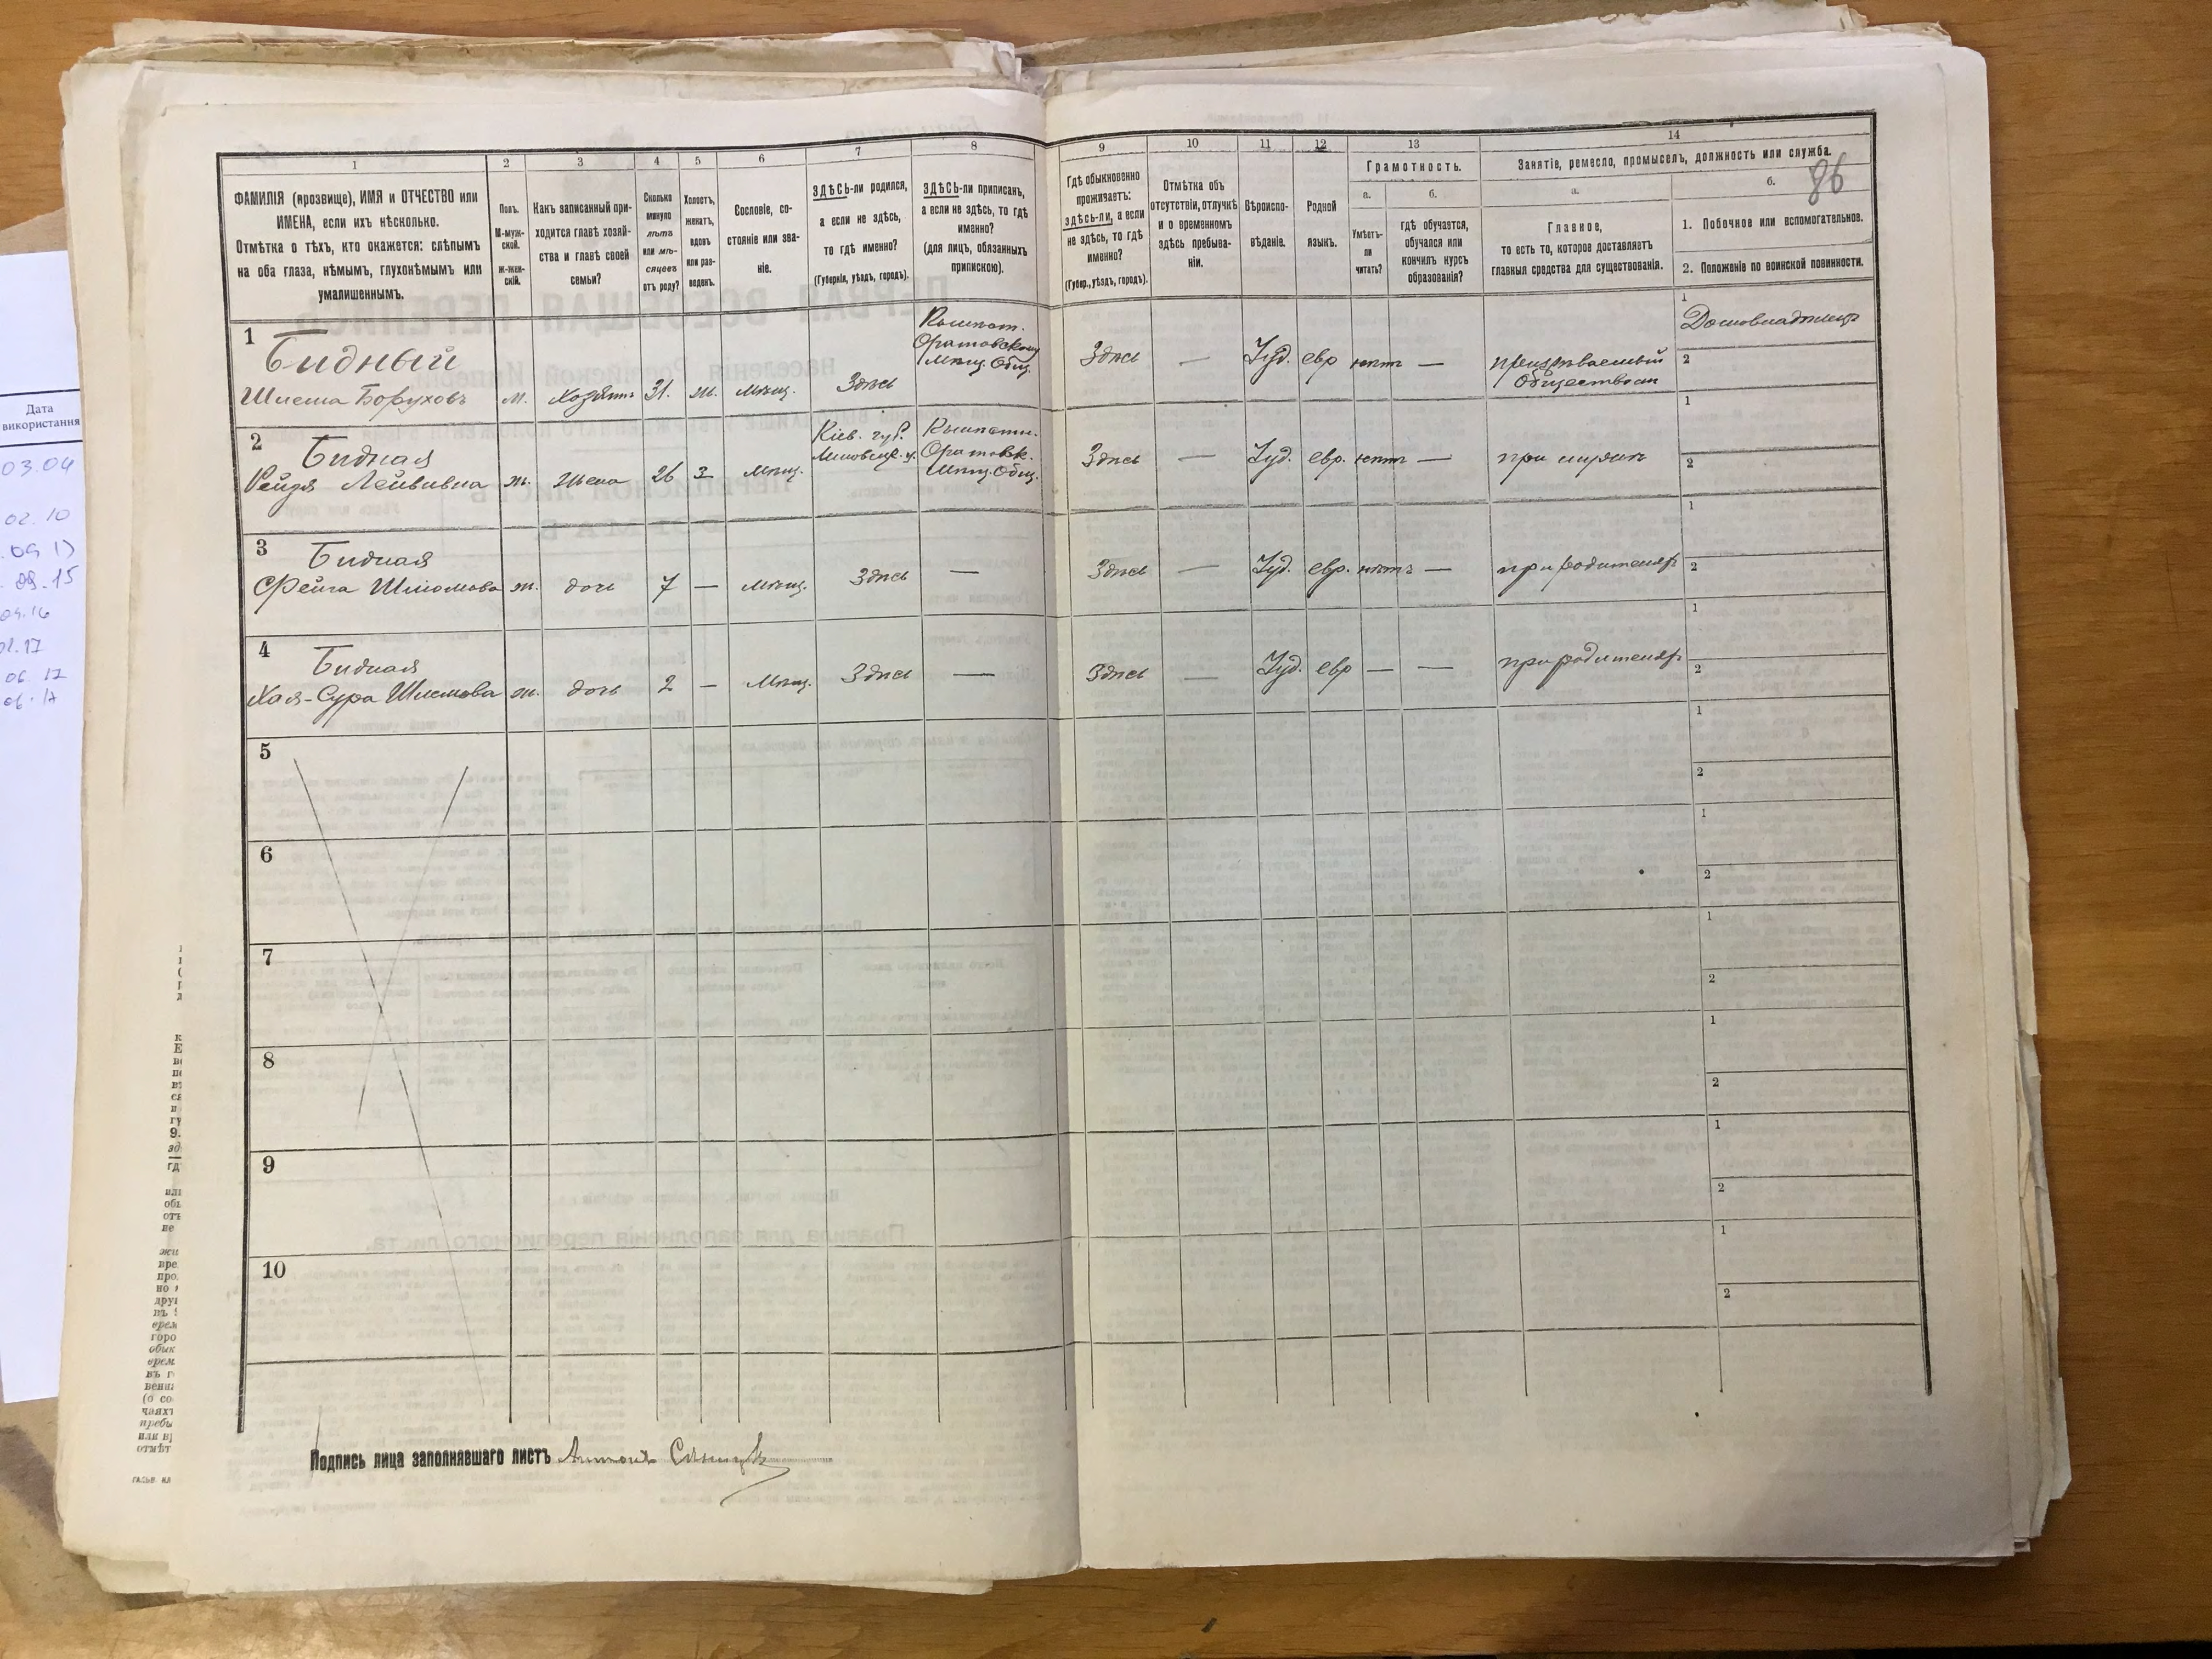 86
1
2
3
4
5
6
7
8
9
10
11
12
13
14
ФАМИЛІЯ (прозвище), ИМЯ и ОТЧЕСТВО или
ИМЕНА, если ихъ нѣсколько.
Отмѣтка о тѣхъ, кто окажется: слѣпымъ
на оба глаза, нѣмымъ, глухонѣмымъ или
умалишеннымъ.
Полъ.
М-муж-
ской.
Ж-жен-
скій.
Какъ записанный при-
ходится главѣ хозяй-
ства и главѣ своей
семьи?
Сколько
минуло
лѣтъ
или мѣ-
сяцевъ
отъ роду?
Холостъ,
женатъ,
вдовъ
или раз-
веденъ.
Сословіе, со-
стояніе или зва-
ніе.
ЗДѢСЬ-ли родился,
а если не здѣсь,
то гдѣ именно?
(Губернія, уѣздъ, городъ).
ЗДѢСЬ-ли приписанъ,
а если не здѣсь, то гдѣ
именно?
(для лицъ, обязанныхъ
припискою).
Гдѣ обыкновенно
проживаетъ:
здѣсь-ли, а если
не здѣсь, то гдѣ
именно?
(Губер., уѣздъ, городъ).
Отмѣтка объ
отсутствіи, отлучкѣ
и о временномъ
здѣсь пребыва-
ніи.
Вѣроиспо-
вѣданіе.
Родной
языкъ.
Грамотность.
а.
Умѣетъ-
ли
читать?
б.
гдѣ обучается,
обучался или
кончилъ курсъ
образованія?
Занятіе, ремесло, промыселъ, должность или служба.
а.
Главное,
то есть то, которое доставляетъ
главныя средства для существованія.
б.
1. Побочное или вспомогательное.
2. Положеніе по воинской повинности.
1
Бидный
Шлема Боруховъ
м.
хозяинъ
31.
ж.
мѣщ.
Здѣсь
Оратовскому
Мѣщ. Общ.
Здѣсь
—
Іуд.
евр
нѣтъ
—
призрѣваемый
обществомъ
1
2
2
Бидная
Рейзя Лейбивна
ж.
жена
26
З
мѣщ.
Кіев. губ.
Липовец. у.
Оратовск.
Мѣщ. Общ.
Здѣсь
—
Іуд.
евр.
нѣтъ
—
при мужѣ
1
2
3
Бидная
Фейга Шлiомова
ж.
дочь
7
—
мѣщ.
Здѣсь
—
Здѣсь
—
Іуд.
евр.
нѣтъ
—
при родителяхъ
1
2
4
Бидная
Хая-Сура Шлемова
ж.
дочь
2
—
Мѣщ.
Здѣсь
—
Здѣсь
—
Іуд.
евр
—
—
при родителяхъ
1
2
5
1
2
6
1
2
7
1
2
8
1
2
9
1
2
10
1
2
Подпись лица заполнявшаго листъ
Дата
використання
03.04
02.10
09.15
04.16
06.17
06.17